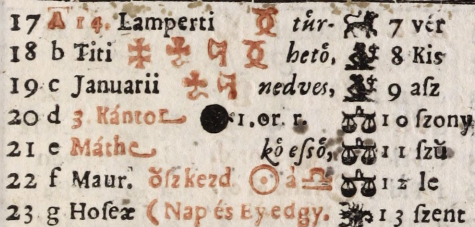 17 A 14. Lamperti tűr- 7 vér
18 b Titi hető, 8 Kis
19 c Januarii nedves, 9 aſz
20 d 3 Kántor 1. or. r. 10 ſzony
21 e Máthe kő eſső, 11 ſzű
22 f Maur. őſzkezd ☉ a ♎ 12 le
23 g Hoſeæ ( Nap és Ey edgy. 13 ſzent